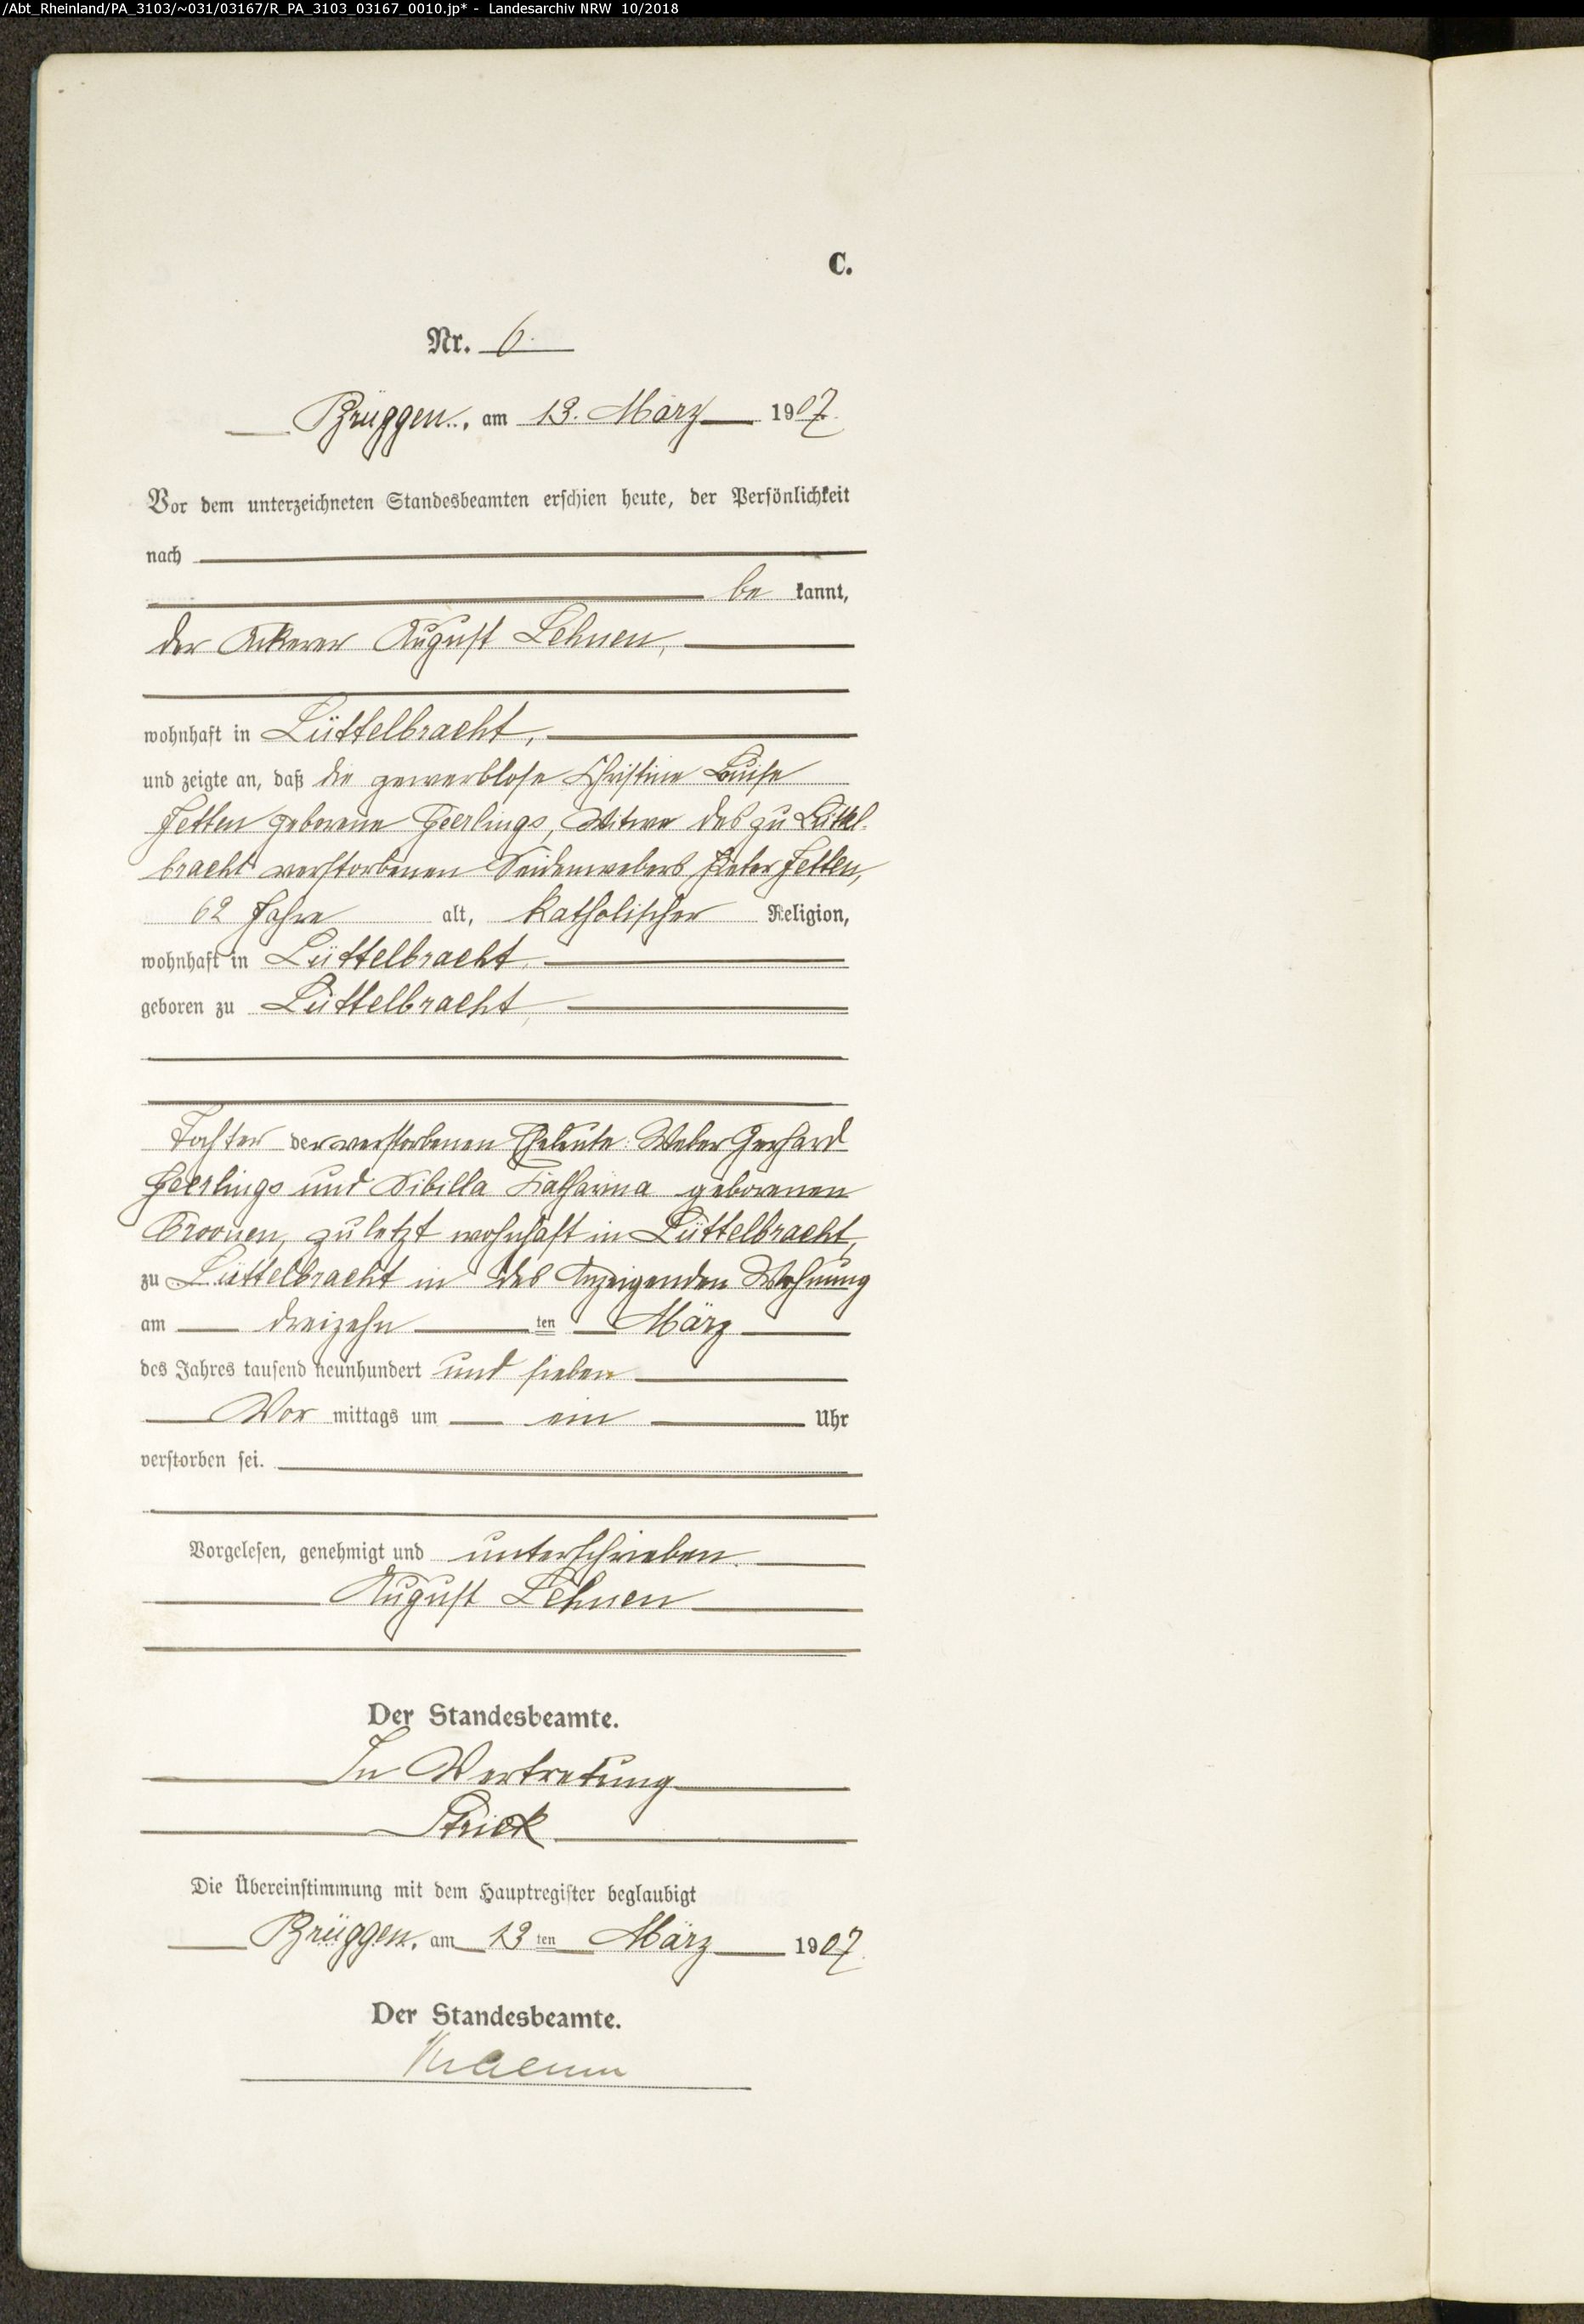 /Abt_Rheinland/PA_3103/~031/03167/R_PA_3103_03167_0010.jp* - Landesarchiv NRW 10/2018
C.
Nr. 6.
Brüggen, am 13. März 1907.
Vor dem unterzeichneten Standesbeamten erschien heute, der Persönlichkeit
nach
be kannt,
der Ackerer August Lehnen,
wohnhaft in Lüttelbracht,
und zeigte an, daß die gewerblose Christine Luise
Jetten geborene Geerlings, Witwe des zu Lüttel-
bracht verstorbenen Seidenwebers Peter Jetten,
62 Jahre alt, katholischer Religion,
wohnhaft in Lüttelbracht,
geboren zu Lüttelbracht,
Tochter der verstorbenen Eheleute: Weber Gerhard
Geerlings und Sibilla Katharina geborenen
Croonen, zuletzt wohnhaft in Lüttelbracht,
zu Lüttelbracht in des Anzeigenden Wohnung
am dreizehn ten März
des Jahres tausend neunhundert und sieben
Vor mittags um ein Uhr
verstorben sei.
Vorgelesen, genehmigt und unterschrieben.
August Lehnen
Der Standesbeamte.
In Vertretung
Strick
Die Übereinstimmung mit dem Hauptregister beglaubigt
Brüggen, am 13 ten März 1907.
Der Standesbeamte.